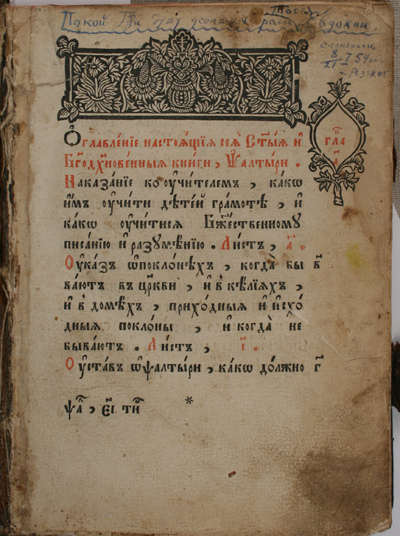 Покой Гди душу усопшия рабы
Скончалась
8
XI
54
г. Резекне
Ѻглавле́нїе настоѧ́щїѧ сеѧ̀ Ст҃ы́ѧ и҆
Бг҃од̾хнове́нныѧ кни́ги, Ѱалты́ри.
Наказа́нїе ко ᲂу҆чи́телемъ, ка́кѡ
и҆̀мъ ᲂу҆чи́ти дѣте́й гра́мотѣ, и҆
ка́кѡ ᲂу҆чи́тисѧ Бж҃е́ственому
писа́нїю и҆ разꙋмѣ́нїю. Ли́стъ, а҃.
Оу҆ка́зъ ѡ҆ покло́нѣхъ, когда̀ бы в̾
ва́ютъ въ цр҃кви, и҆ в̾ ке́лїѧхъ,
и҆ в̾ домѣ́хъ, прихо́дныѧ и҆ и҆схо́
дныѧ покло́ны, и҆ когда̀ не
быва́ютъ. Ли́стъ, г҃.
Оу҆ста́въ ѡ҆ ѱалты́ри, ка́кѡ до́лжно г҃
гла
а҃
*